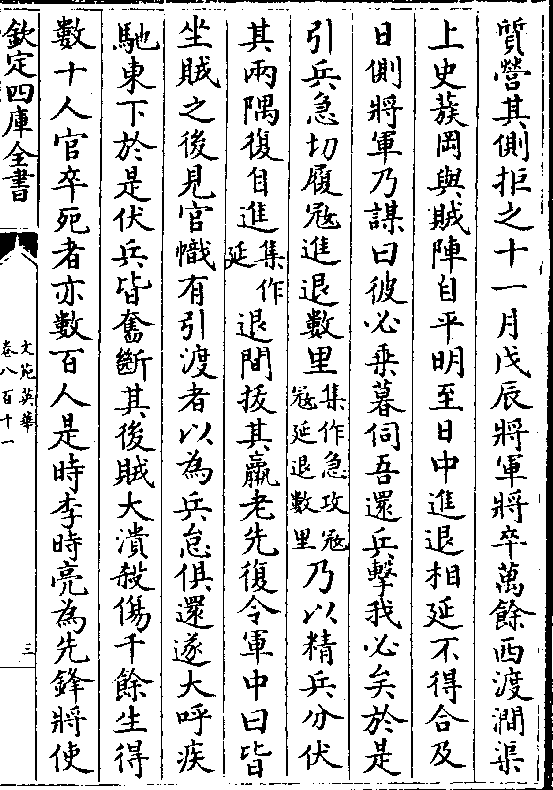 質營其側拒之十一月戊辰將軍將卒萬餘西渡澗渠
上史蔟岡與賊陣自平明至日中進退相延不得合及
日側將軍乃謀曰彼必乗暮伺吾還兵擊我必矣於是
引兵急切履㓂進退數里集作急攻㓂㓂延退數里乃以精兵分伏
其兩隅復自進集作延退間拔其羸老先復令軍中曰皆
坐賊之後見官幟有引渡者以為兵怠俱還遂大呼疾
馳東下於是伏兵皆奮斷其後賊大潰殺傷千餘生得
數十人官卒死者亦數百人是時李時亮為先鋒將使
欽定四庫全書
文苑英華
卷八百十一
三